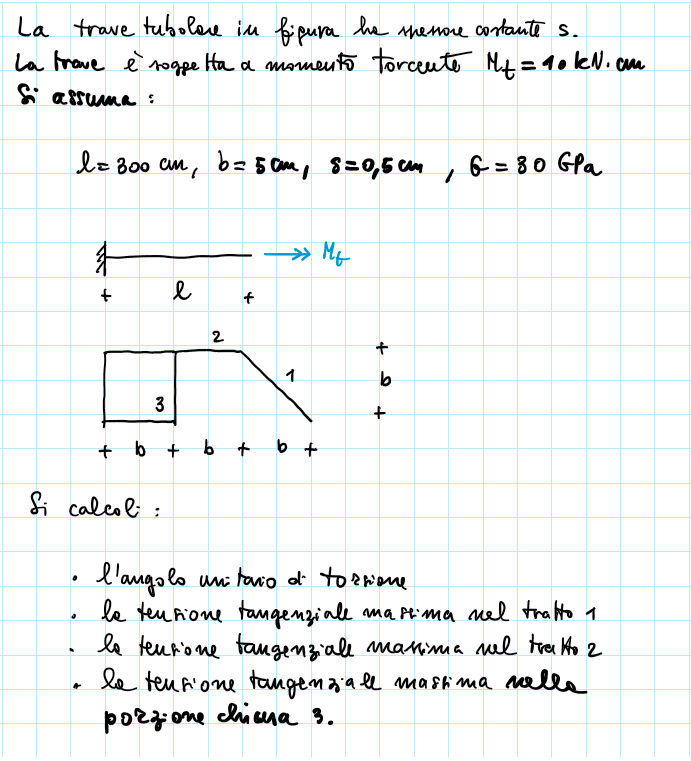 La trave tubolare in figura ha spessore costante s.
La trave è soggetta a momento torcente Mt = 10 kN·cm
Si assuma :
l = 300 cm, b = 5 cm, s = 0,5 cm , G = 80 GPa
Mt
+ l +
2
1
3
+
b
+
+ b + b + b +
Si calcoli :
• l'angolo unitario di torsione
• la tensione tangenziale massima nel tratto 1
• la tensione tangenziale massima nel tratto 2
• la tensione tangenziale massima nella
porzione chiusa 3.